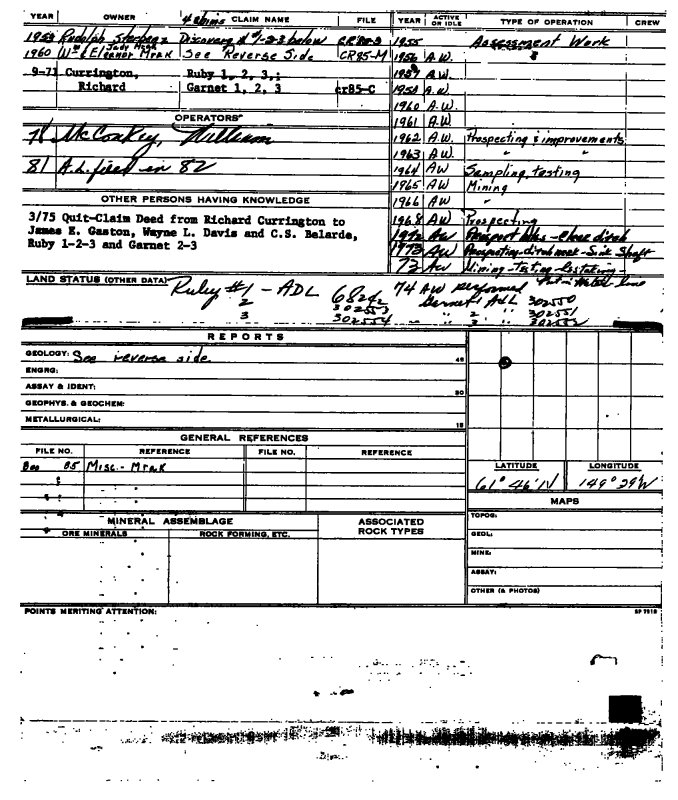 YEAR OWNER 4 claims CLAIM NAME FILE
1953 Rudolph Discovery & #1-2-3 below CR85-3
1960 Wm & Eleanor Mrak See Reverse Side CR85-M
9-71 Currington, Ruby 1, 2, 3,;
Richard Garnet 1, 2, 3 cr85-C
OPERATORS
78 McConkey, William
81 A.L. filed in 82
OTHER PERSONS HAVING KNOWLEDGE
3/75 Quit-Claim Deed from Richard Currington to
James E. Gaston, Wayne L. Davis and C.S. Belarde,
Ruby 1-2-3 and Garnet 2-3
YEAR ACTIVE OR IDLE TYPE OF OPERATION CREW
1955 Assessment Work
1956 A.W. "
1957 A.W.
1958 A.W.
1960 A.W.
1961 A.W.
1962 A.W. Prospecting & improvements
1963 A.W. " "
1964 AW Sampling, testing
1965 AW Mining
1966 AW "
1968 AW Prospecting
1972 AW - Clear ditch
1973 AW Prospecting-ditch work-Sink Shaft
73 AW Mining-Testing-
Put in Water Line
LAND STATUS (OTHER DATA)
Ruby #1 - ADL 68242 74 AW performed
2 302553 Garnet 1 ADL 302550
3 302554 " 2 " 302551
" 3 " 302552
REPORTS
GEOLOGY: See reverse side.
ENGRG:
ASSAY & IDENT:
GEOPHYS. & GEOCHEM:
METALLURGICAL:
GENERAL REFERENCES
FILE NO. REFERENCE FILE NO. REFERENCE
85 Misc.- Mrak
LATITUDE LONGITUDE
61° 46'N 149° 29'W
MAPS
TOPOG:
GEOL:
MINE:
ASSAY:
OTHER (& PHOTOS)
MINERAL ASSEMBLAGE ASSOCIATED ROCK TYPES
ORE MINERALS ROCK FORMING, ETC.
POINTS MERITING ATTENTION: